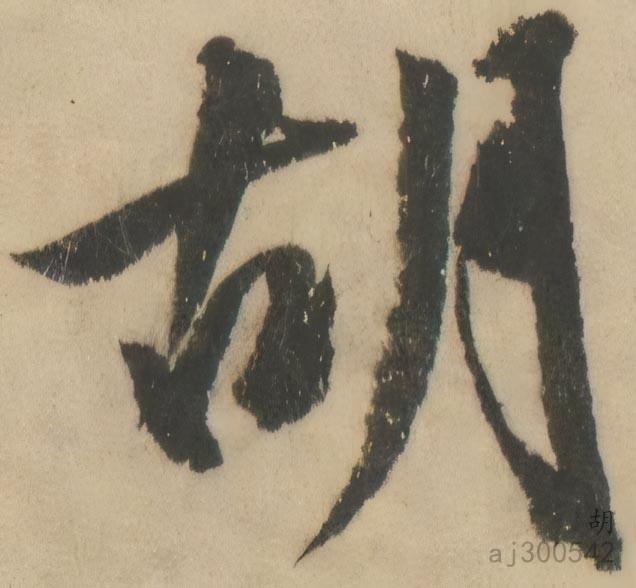 胡
胡
aj300542